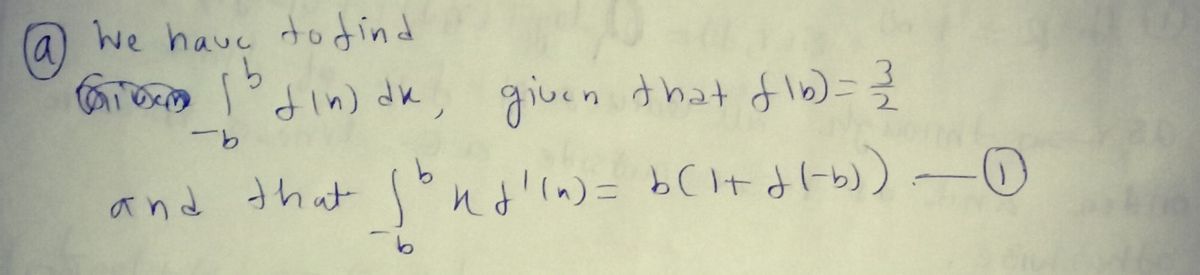 (a) We have to find
∫_{-b}^{b} f(x) dx, given that f(b) = 3/2
and that ∫_{-b}^{b} x f'(x) = b(1 + f(-b)) — (1)